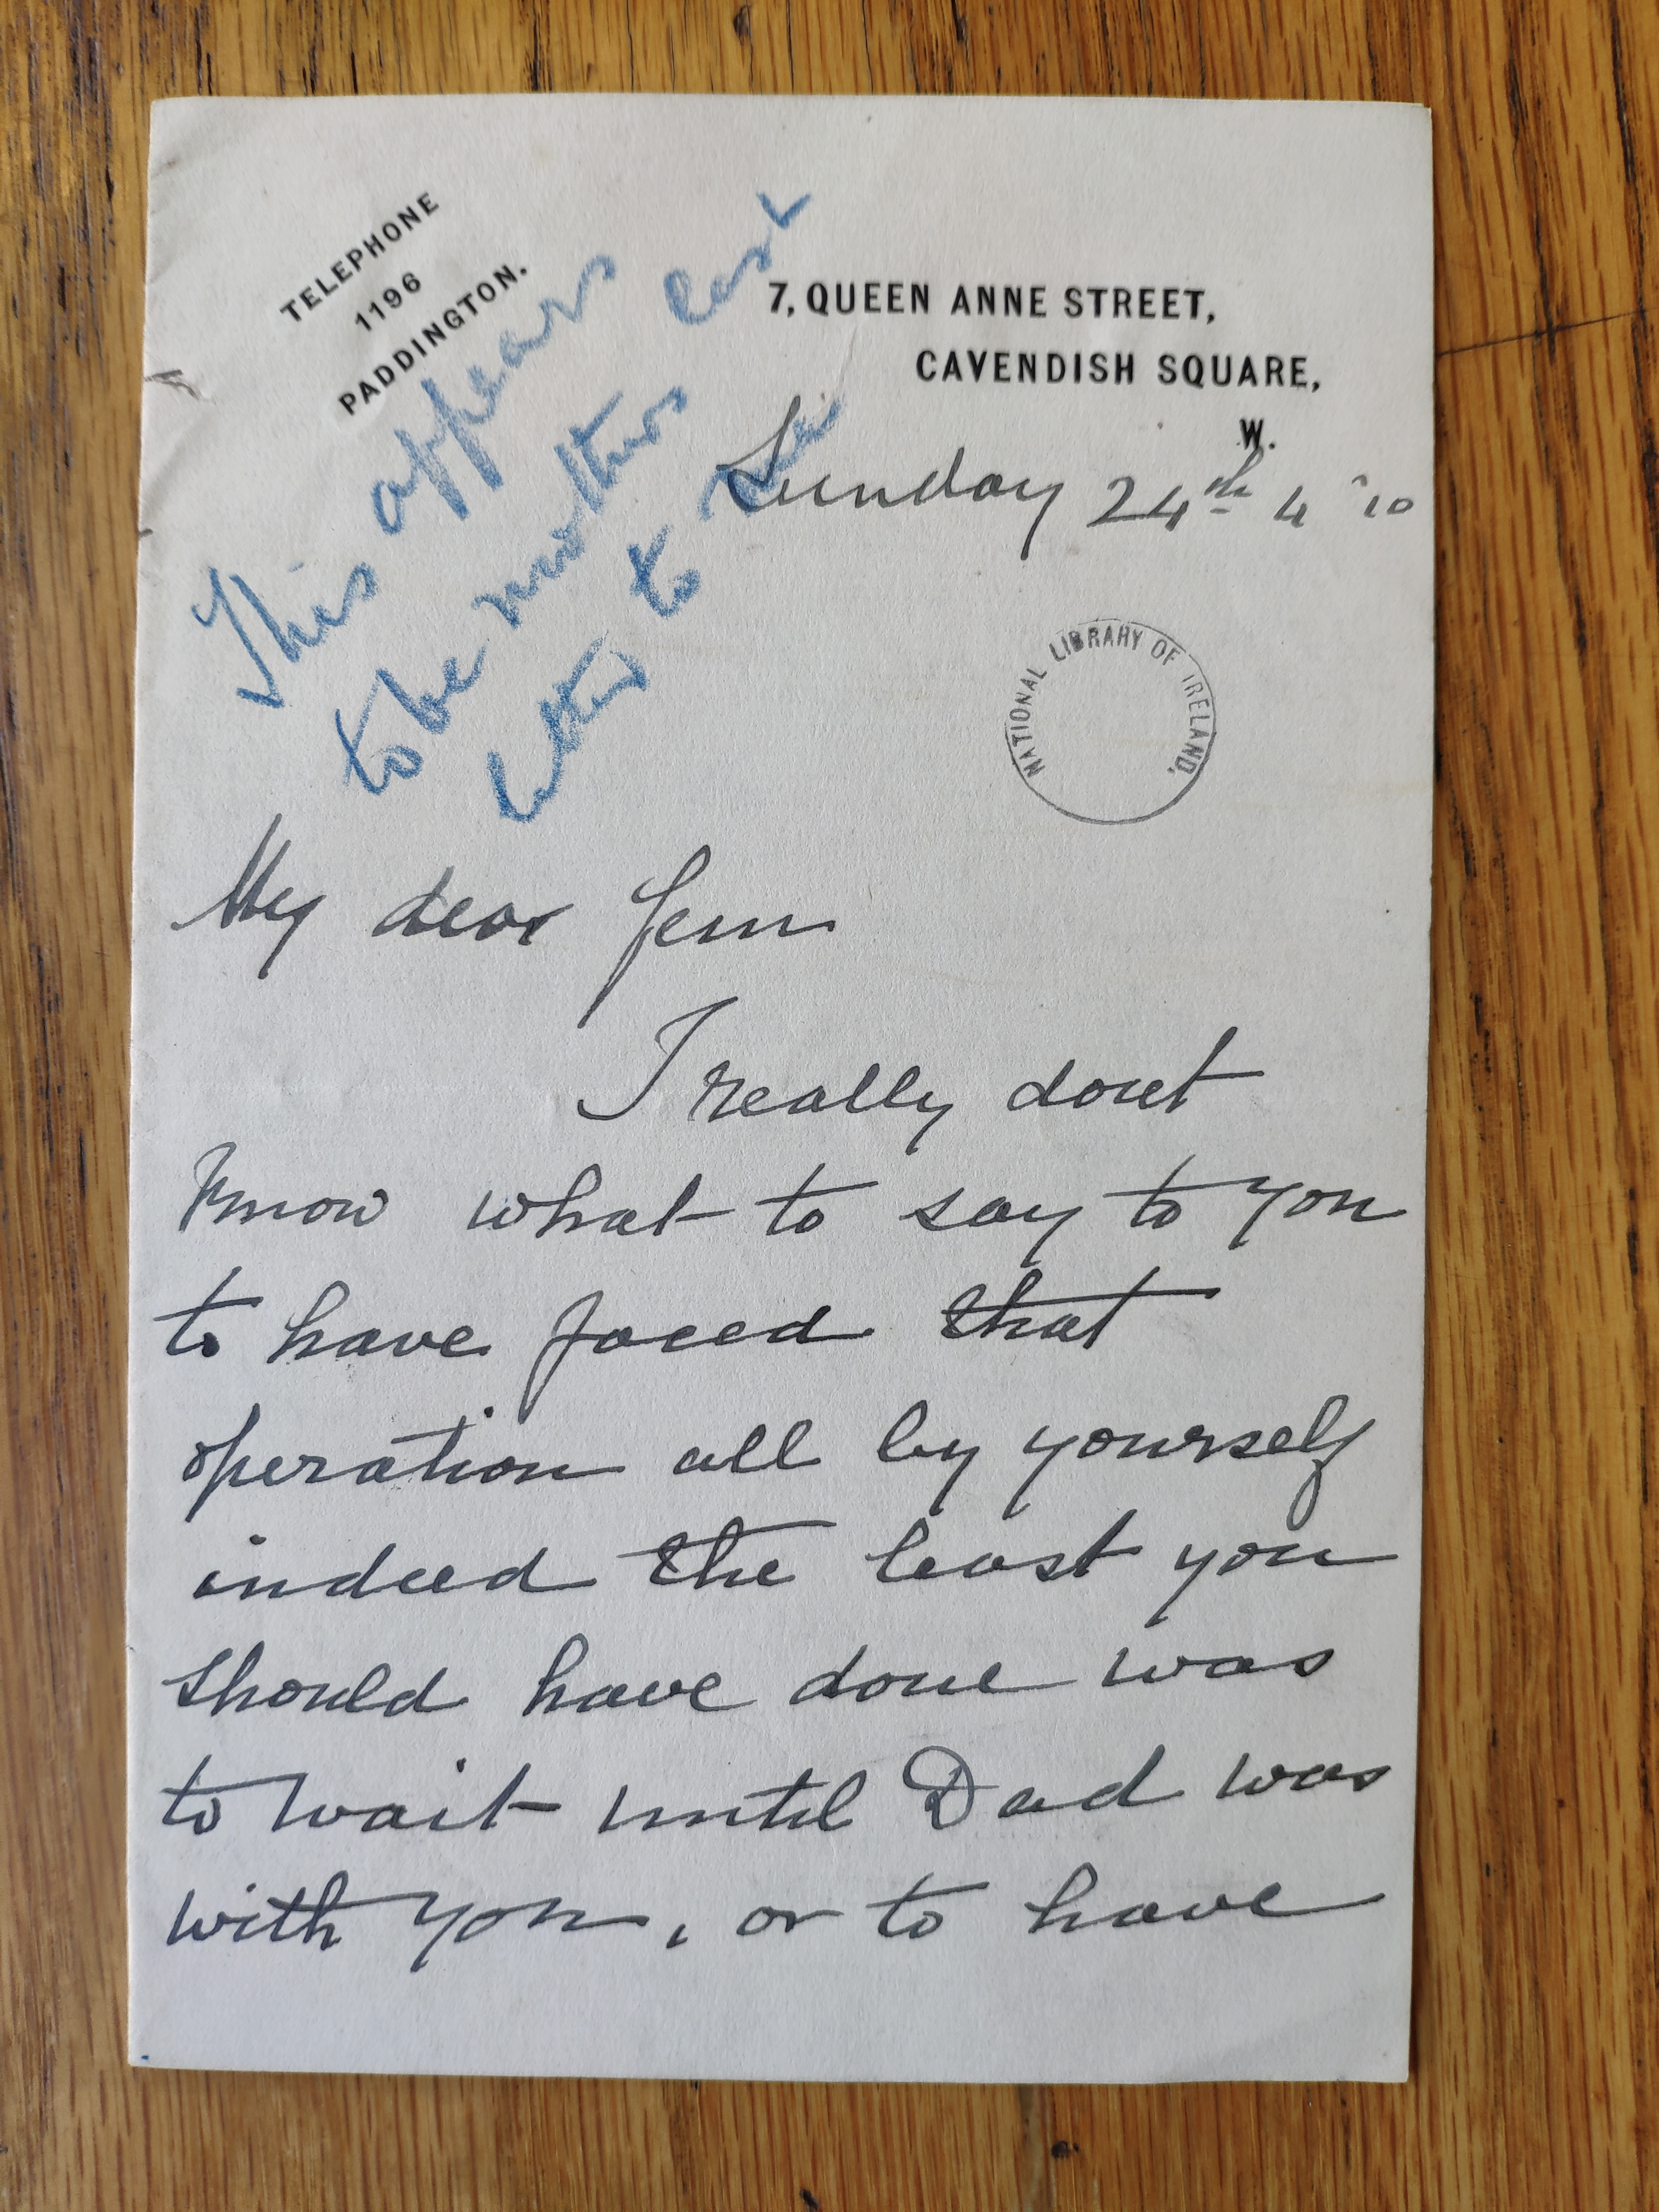 TELEPHONE
1196
PADDINGTON.
7, QUEEN ANNE STREET,
CAVENDISH SQUARE,
W.
This appears
to be mothers last
letter to me
Sunday 24th 4 '10
NATIONAL LIBRARY OF IRELAND.
My dear Jem
I really dont
know what to say to you
to have faced that
operation all by yourself
indeed the least you
should have done was
to wait until Dad was
with you, or to have